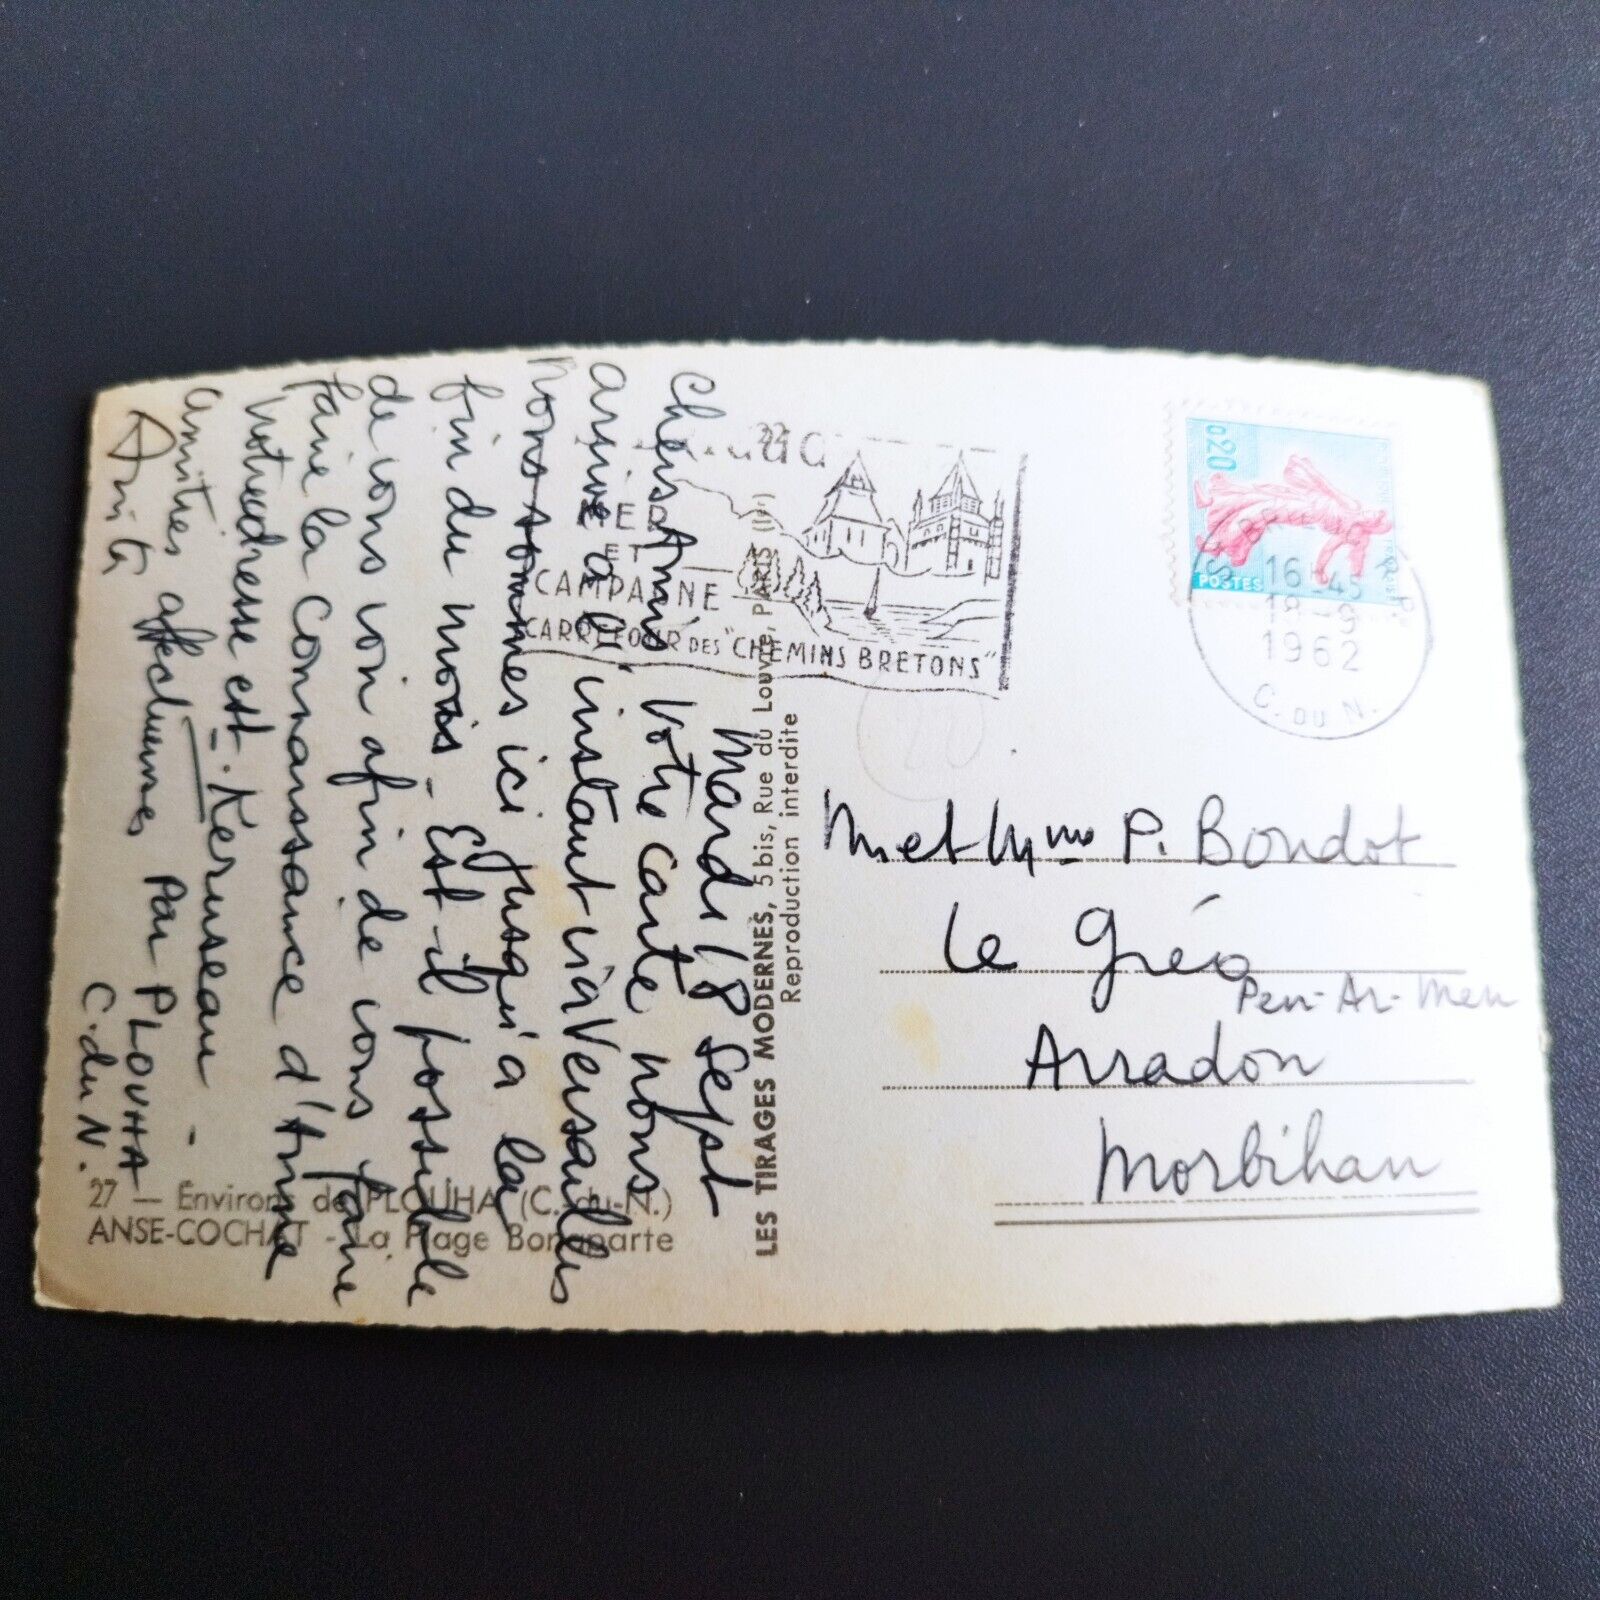 Mardi 18 Sept
Chers Amis Votre carte nous
arrive à l'instant via Versailles
Nous sommes ici jusqu'à la
fin du mois - Est-il possible
de vous voir afin de vous faire
faire la Connaissance d'Anne
Notre adresse est - Kerunseau -
Amitiés affectueuses Par PLOUHA
C. du N.
Anita
27 — Environs de PLOUHA (C.-du-N.)
ANSE-COCHAT - La Plage Bonaparte
LES TIRAGES MODERNES, 5 bis, Rue du Louvre, PARIS (Ier)
Reproduction interdite
22
MER
ET
CAMPAGNE
CARREFOUR DES "CHEMINS BRETONS"
0,20
POSTES
16H45
18-9
1962
C. DU N.
M et Mme P. Boudot
Le Gréo
Pen-Ar-Men
Arradon
Morbihan